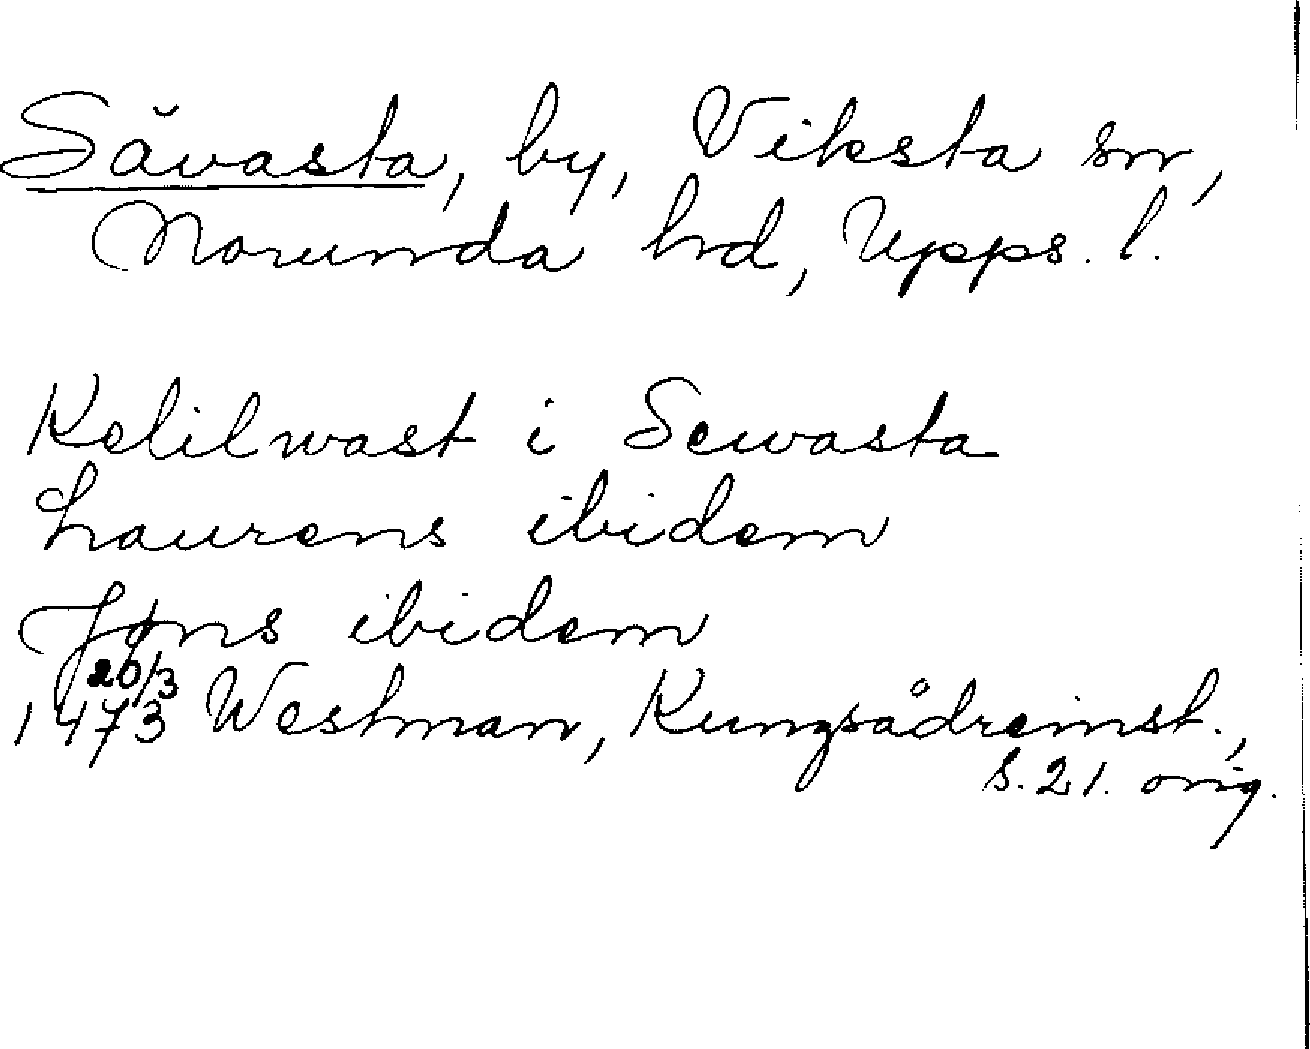 Sävasta, by, Viksta sn,
Norunda hd, Upps. l.
Kelilwast i Sewasta
Laurens ibidem
Jöns ibidem
20/3
1473 Westman, Kungsådreinst.,
s. 21. orig.